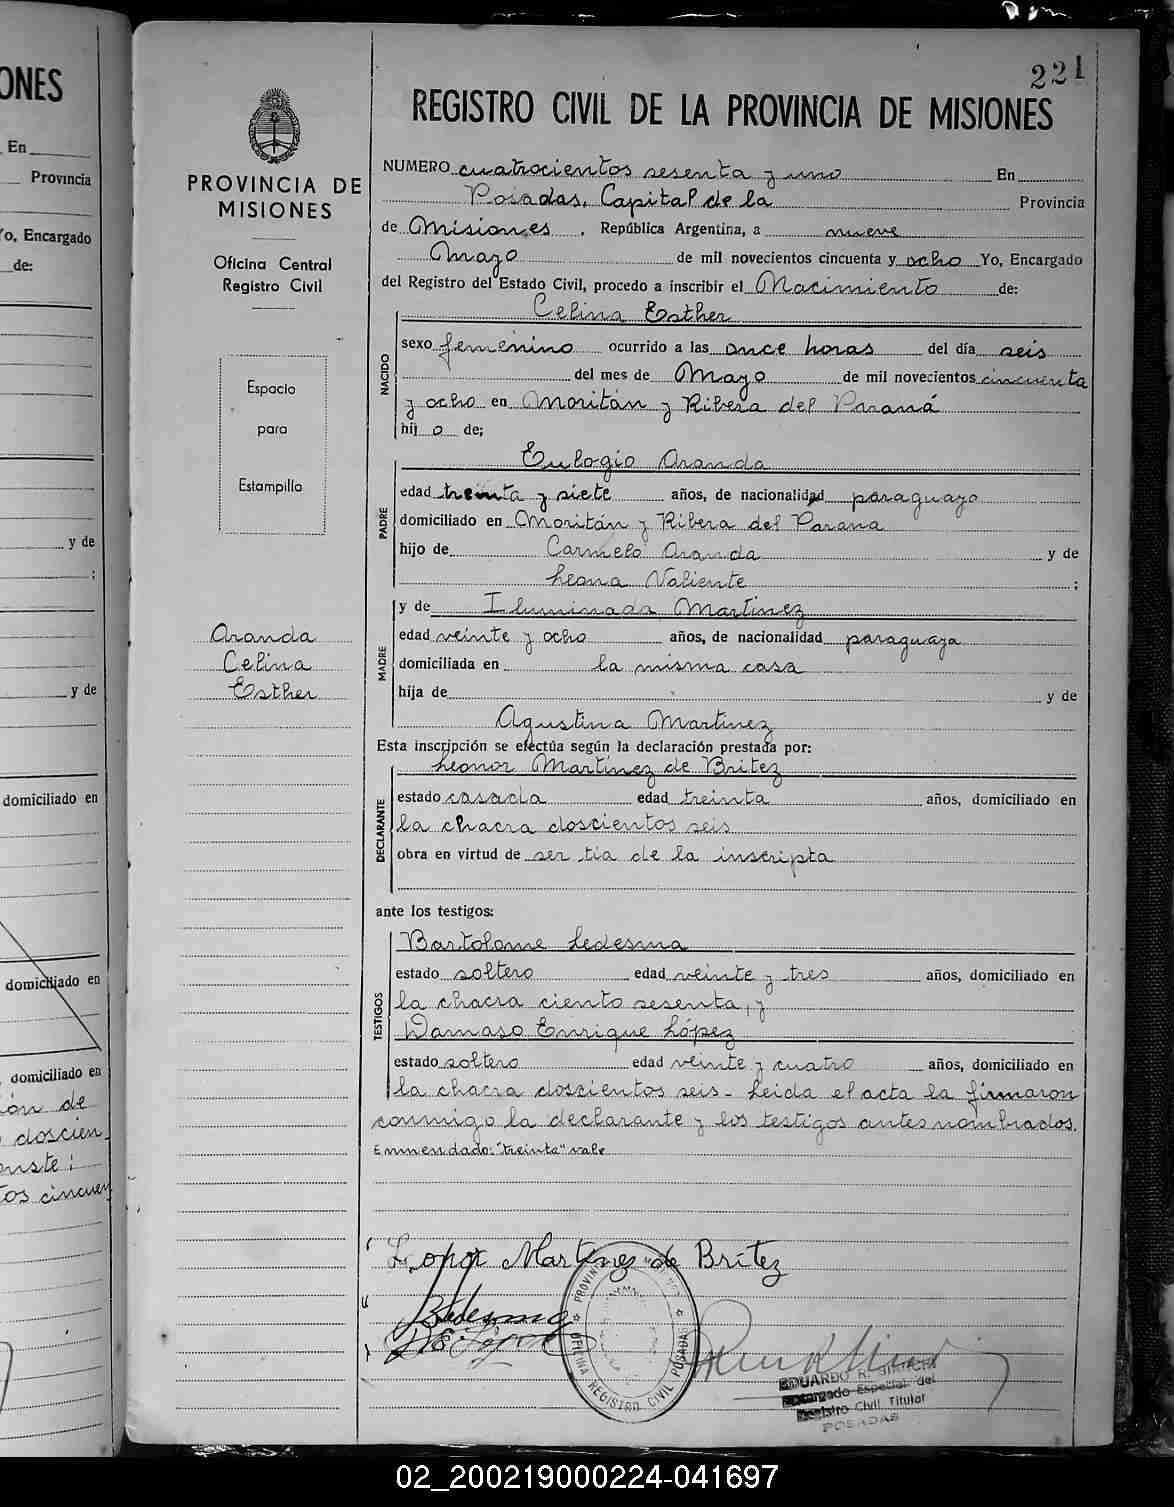 ONES
En
Provincia
Yo, Encargado
de:
y de
;
y de
domiciliado en
domiciliado en
domiciliado en
ión de
doscien
nste;
tos cincuen
PROVINCIA DE
MISIONES
Oficina Central
Registro Civil
Espacio
para
Estampilla
Aranda
Celina
Esther
221
REGISTRO CIVIL DE LA PROVINCIA DE MISIONES
NUMERO cuatrocientos sesenta y uno En
Posadas, Capital de la Provincia
de Misiones, República Argentina, a nueve
Mayo de mil novecientos cincuenta y ocho Yo, Encargado
del Registro del Estado Civil, procedo a inscribir el Nacimiento de:
NACIDO
Celina Esther
sexo femenino ocurrido a las once horas del día seis
del mes de Mayo de mil novecientos cincuenta
y ocho en Moritán y Ribera del Paraná
hij o de;
PADRE
Eulogio Aranda
edad treinta y siete años, de nacionalidad paraguayo
domiciliado en Moritán y Ribera del Parana
hijo de Carmelo Aranda y de
Leona Valiente ;
MADRE
y de Iluminada Martinez
edad veinte y ocho años, de nacionalidad paraguaya
domiciliada en la misma casa
hija de y de
Agustina Martinez
Esta inscripción se efectúa según la declaración prestada por:
DECLARANTE
Leonor Martínez de Britez
estado casada edad treinta años, domiciliado en
la chacra doscientos seis
obra en virtud de ser tía de la inscripta
ante los testigos:
TESTIGOS
Bartolome Ledesma
estado soltero edad veinte y tres años, domiciliado en
la chacra ciento sesenta, y
Damaso Enrique López
estado soltero edad veinte y cuatro años, domiciliado en
la chacra doscientos seis - Leida el acta la firmaron
conmigo la declarante y los testigos antes nombrados.
Enmendado: "treinta" vale
Leonor Martinez de Britez
BLedesma
D E López
OFICINA REGISTRO CIVIL POSADAS
EDUARDO R.
Encargado Especial del
Registro Civil Titular
POSADAS
02_200219000224-041697